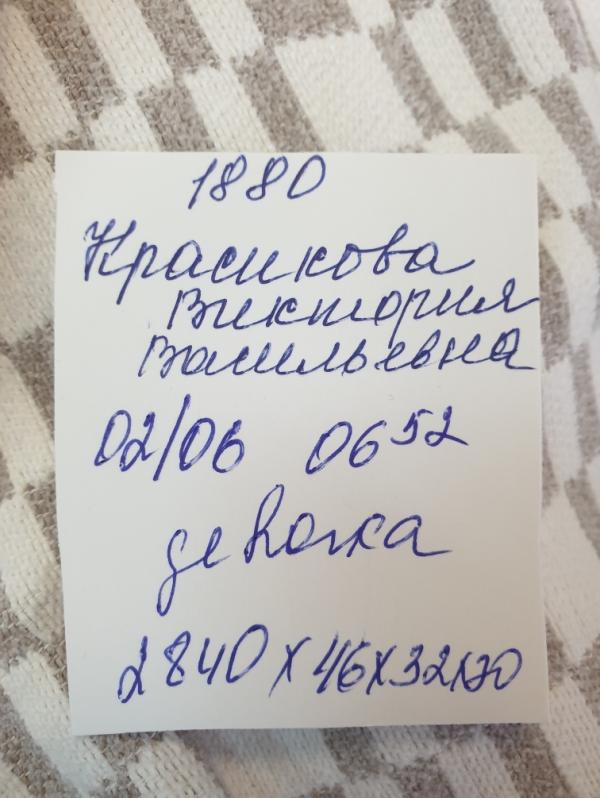 1880
Красикова
Виктория
Васильевна
02/06 06 52
девочка
2840 x 46 x 32 x 30